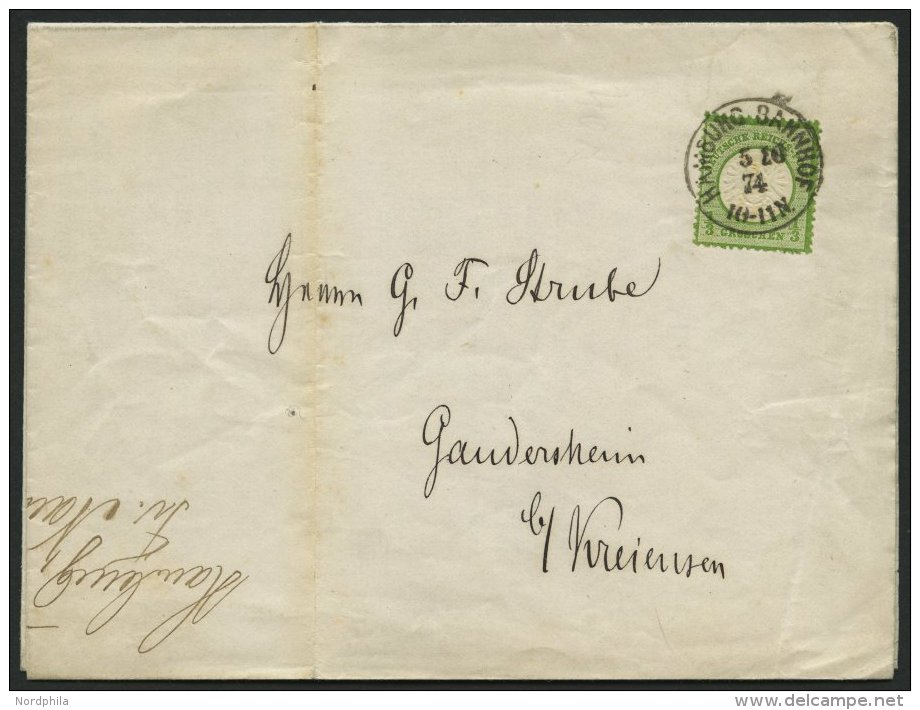 HAMBURG BAHNHOF
5 10
74
10-11N.
DEUTSCHE REICHS
1/3 GROSCHEN 1/3
Herrn G. F. Strube
Gandersheim
b/ Kreiensen
Hamburg
Nordphila
www.delcampe.net